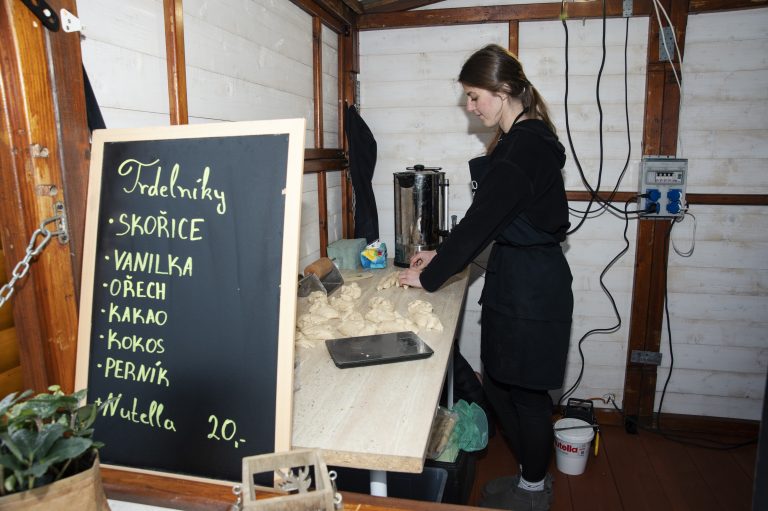 Trdelníky
• SKOŘICE
• VANILKA
• OŘECH
• KAKAO
• KOKOS
• PERNÍK
+ Nutella 20,-
nutella